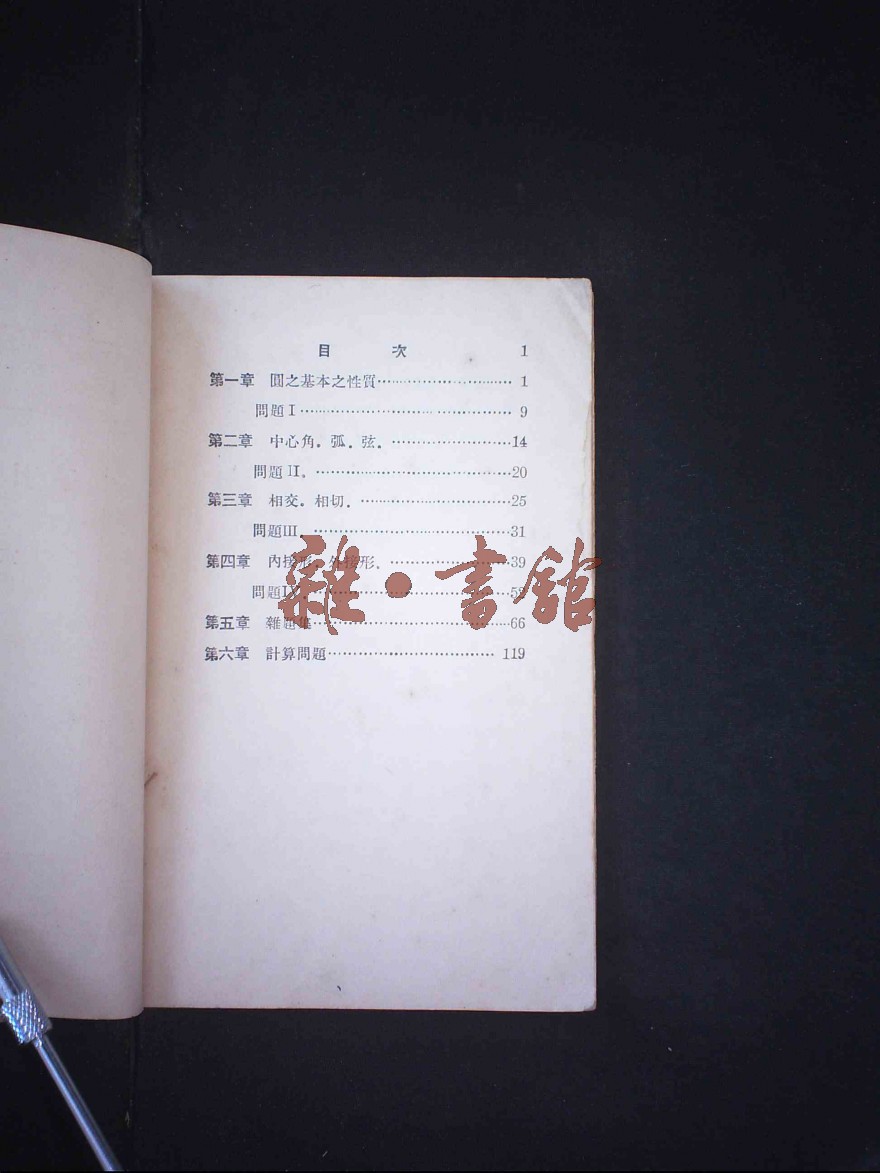 目 次 1
第一章 圓之基本之性質 1
問題 I 9
第二章 中心角．弧．弦． 14
問題 II． 20
第三章 相交．相切． 25
問題III． 31
第四章 內接形．外接形． 39
問題IV．
第五章 雜題集 66
第六章 計算問題 119
雜·書館